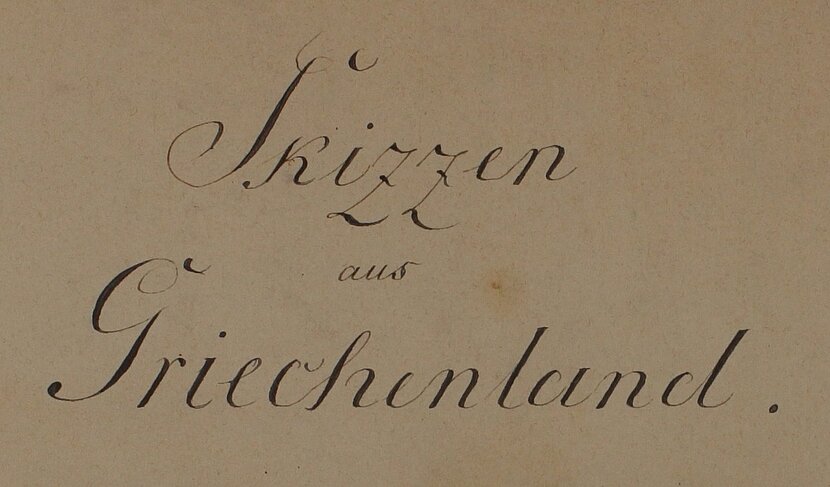 Skizzen
aus
Griechenland.